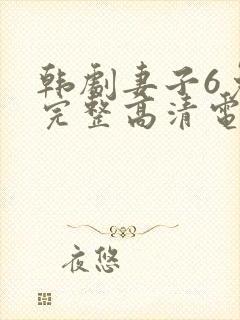 韩剧妻子6
完整高清電
夜悠